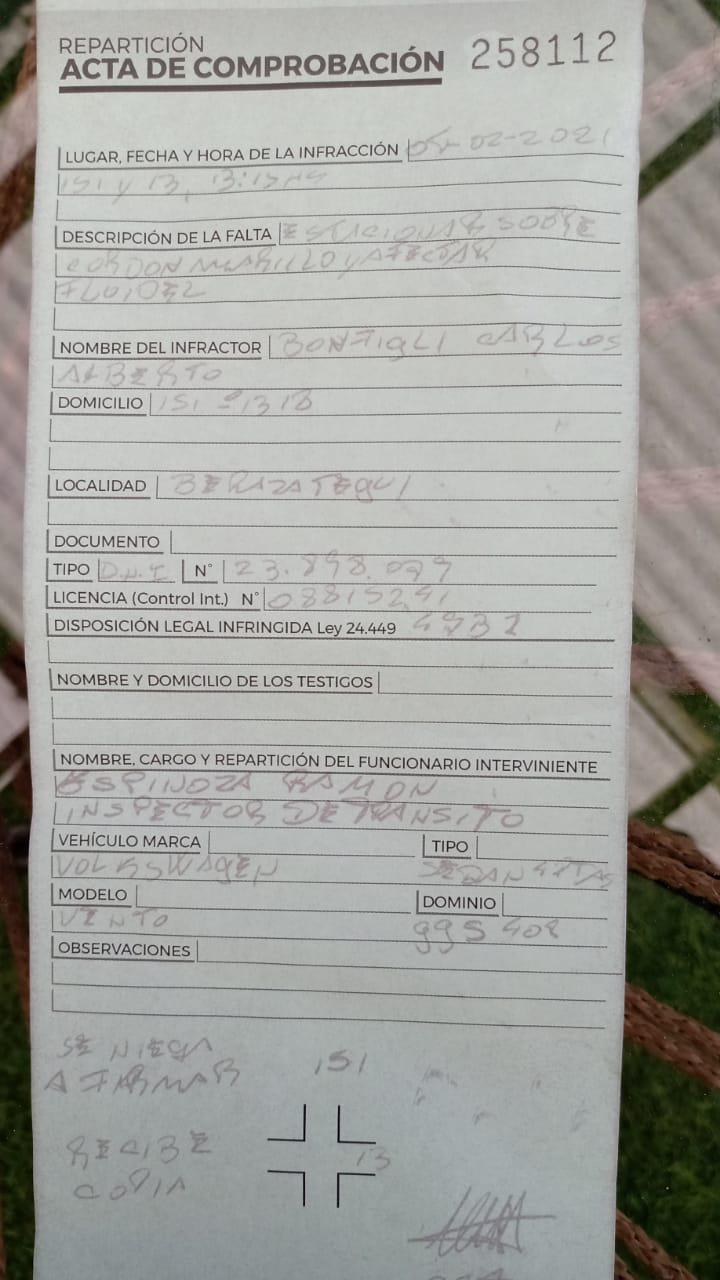 REPARTICIÓN
ACTA DE COMPROBACIÓN 258112
LUGAR, FECHA Y HORA DE LA INFRACCIÓN 05-02-2021
151 y 13, 13:15 HS
DESCRIPCIÓN DE LA FALTA ESTACIONAR SOBRE
CORDON AMARILLO y AFECTAR
FLUIDEZ
NOMBRE DEL INFRACTOR BONFIGLI CARLOS
ALBERTO
DOMICILIO 151 1318
LOCALIDAD BERAZATEGUI
DOCUMENTO
TIPO D.N.I N° 23.898.079
LICENCIA (Control Int.) N°
DISPOSICIÓN LEGAL INFRINGIDA Ley 24.449
NOMBRE Y DOMICILIO DE LOS TESTIGOS
NOMBRE, CARGO Y REPARTICIÓN DEL FUNCIONARIO INTERVINIENTE
ESPINOZA RAMON
INSPECTOR DE TRANSITO
VEHÍCULO MARCA TIPO
VOLKSWAGEN SEDAN
MODELO DOMINIO
VENTO GGS 408
OBSERVACIONES
SE NIEGA
A FIRMAR
151
RECIBE
COPIA
13